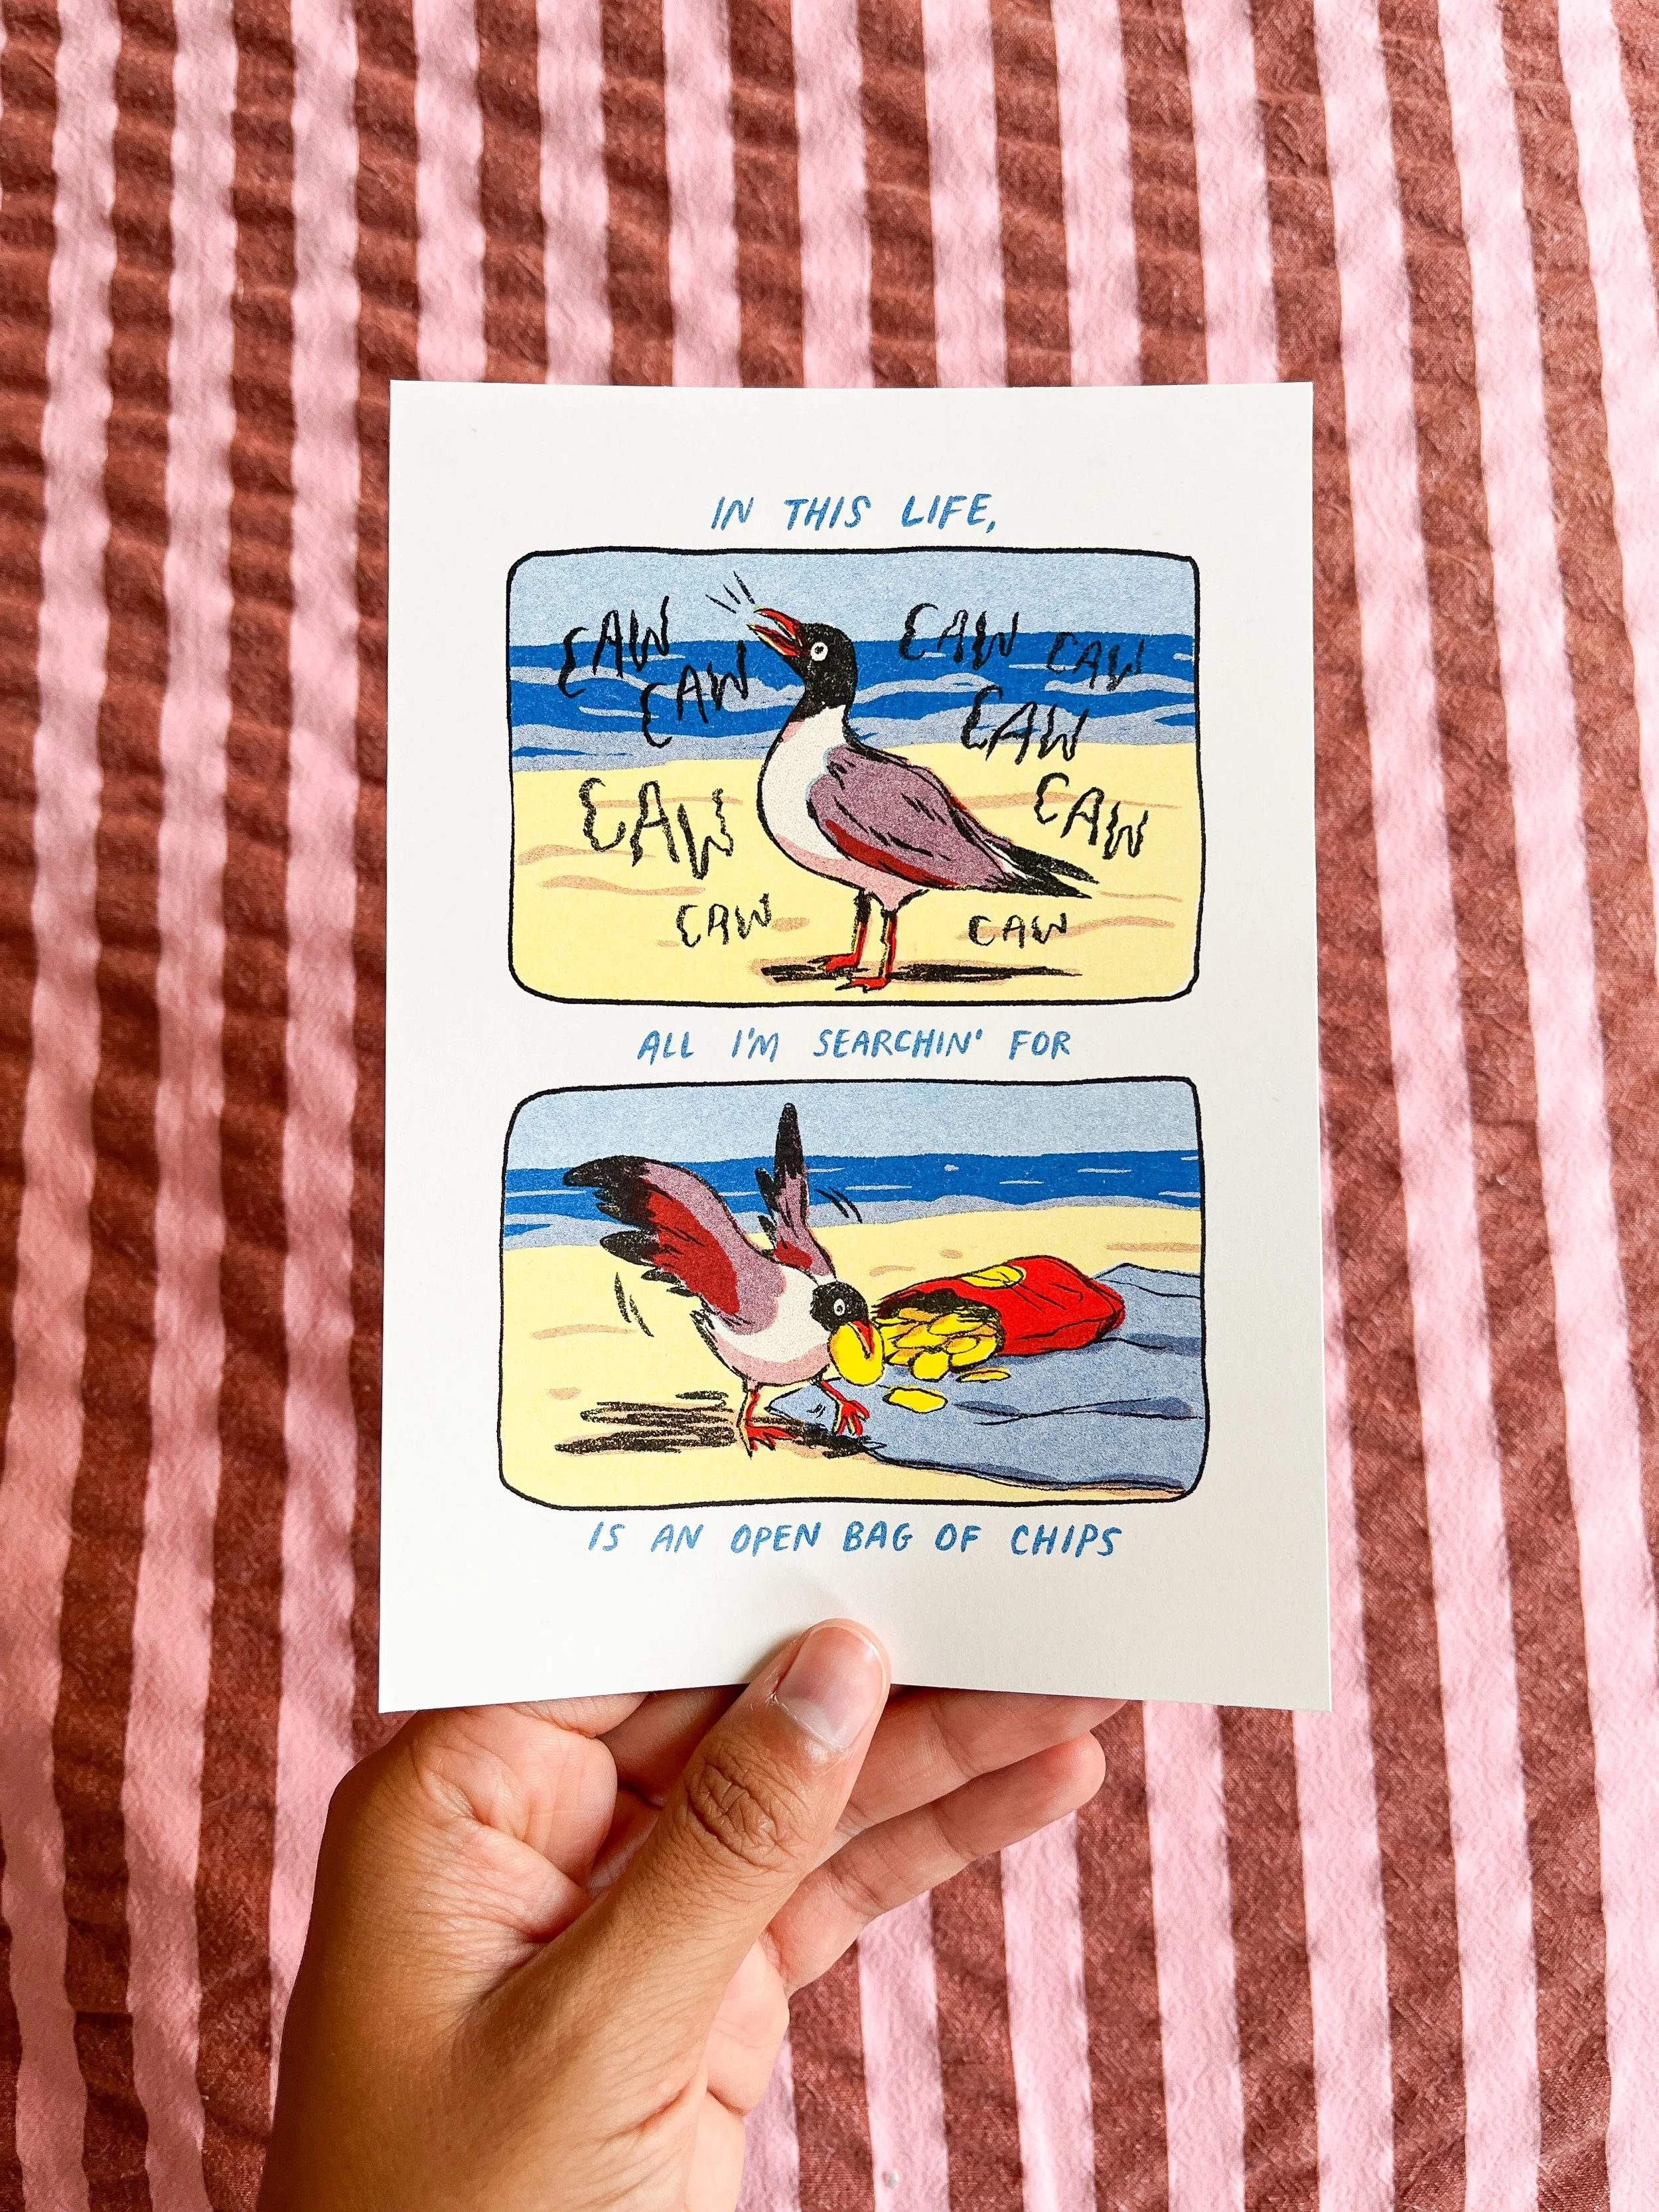 IN THIS LIFE,
CAW
CAW
CAW
CAW
CAW
CAW
CAW
CAW
CAW
ALL I'M SEARCHIN' FOR
IS AN OPEN BAG OF CHIPS